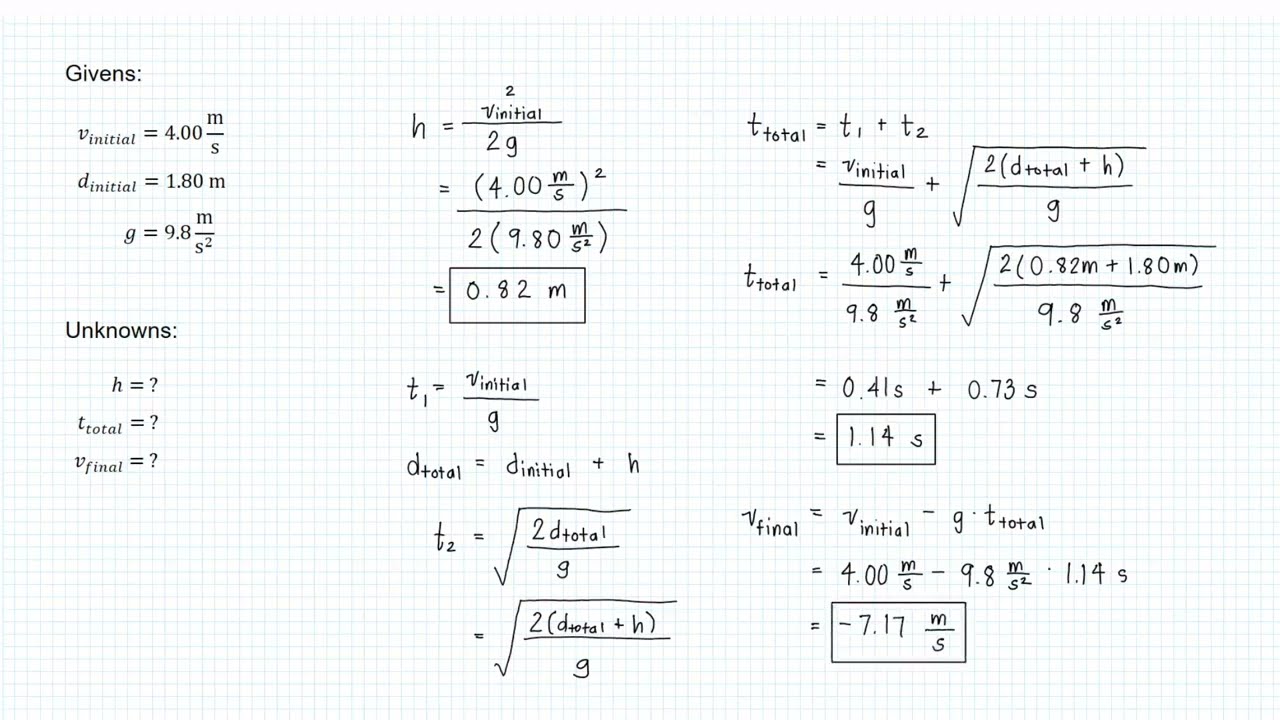 Givens:
v_initial = 4.00 m/s
d_initial = 1.80 m
g = 9.8 m/s²
Unknowns:
h = ?
t_total = ?
v_final = ?
h = v_initial² / 2g
= (4.00 m/s)² / 2(9.80 m/s²)
= 0.82 m
t₁ = v_initial / g
d_total = d_initial + h
t₂ = √(2d_total / g)
= √(2(d_total + h) / g)
t_total = t₁ + t₂
= v_initial / g + √(2(d_total + h) / g)
t_total = 4.00 m/s / 9.8 m/s² + √(2(0.82m + 1.80m) / 9.8 m/s²)
= 0.41s + 0.73 s
= 1.14 s
v_final = v_initial − g · t_total
= 4.00 m/s − 9.8 m/s² · 1.14 s
= −7.17 m/s